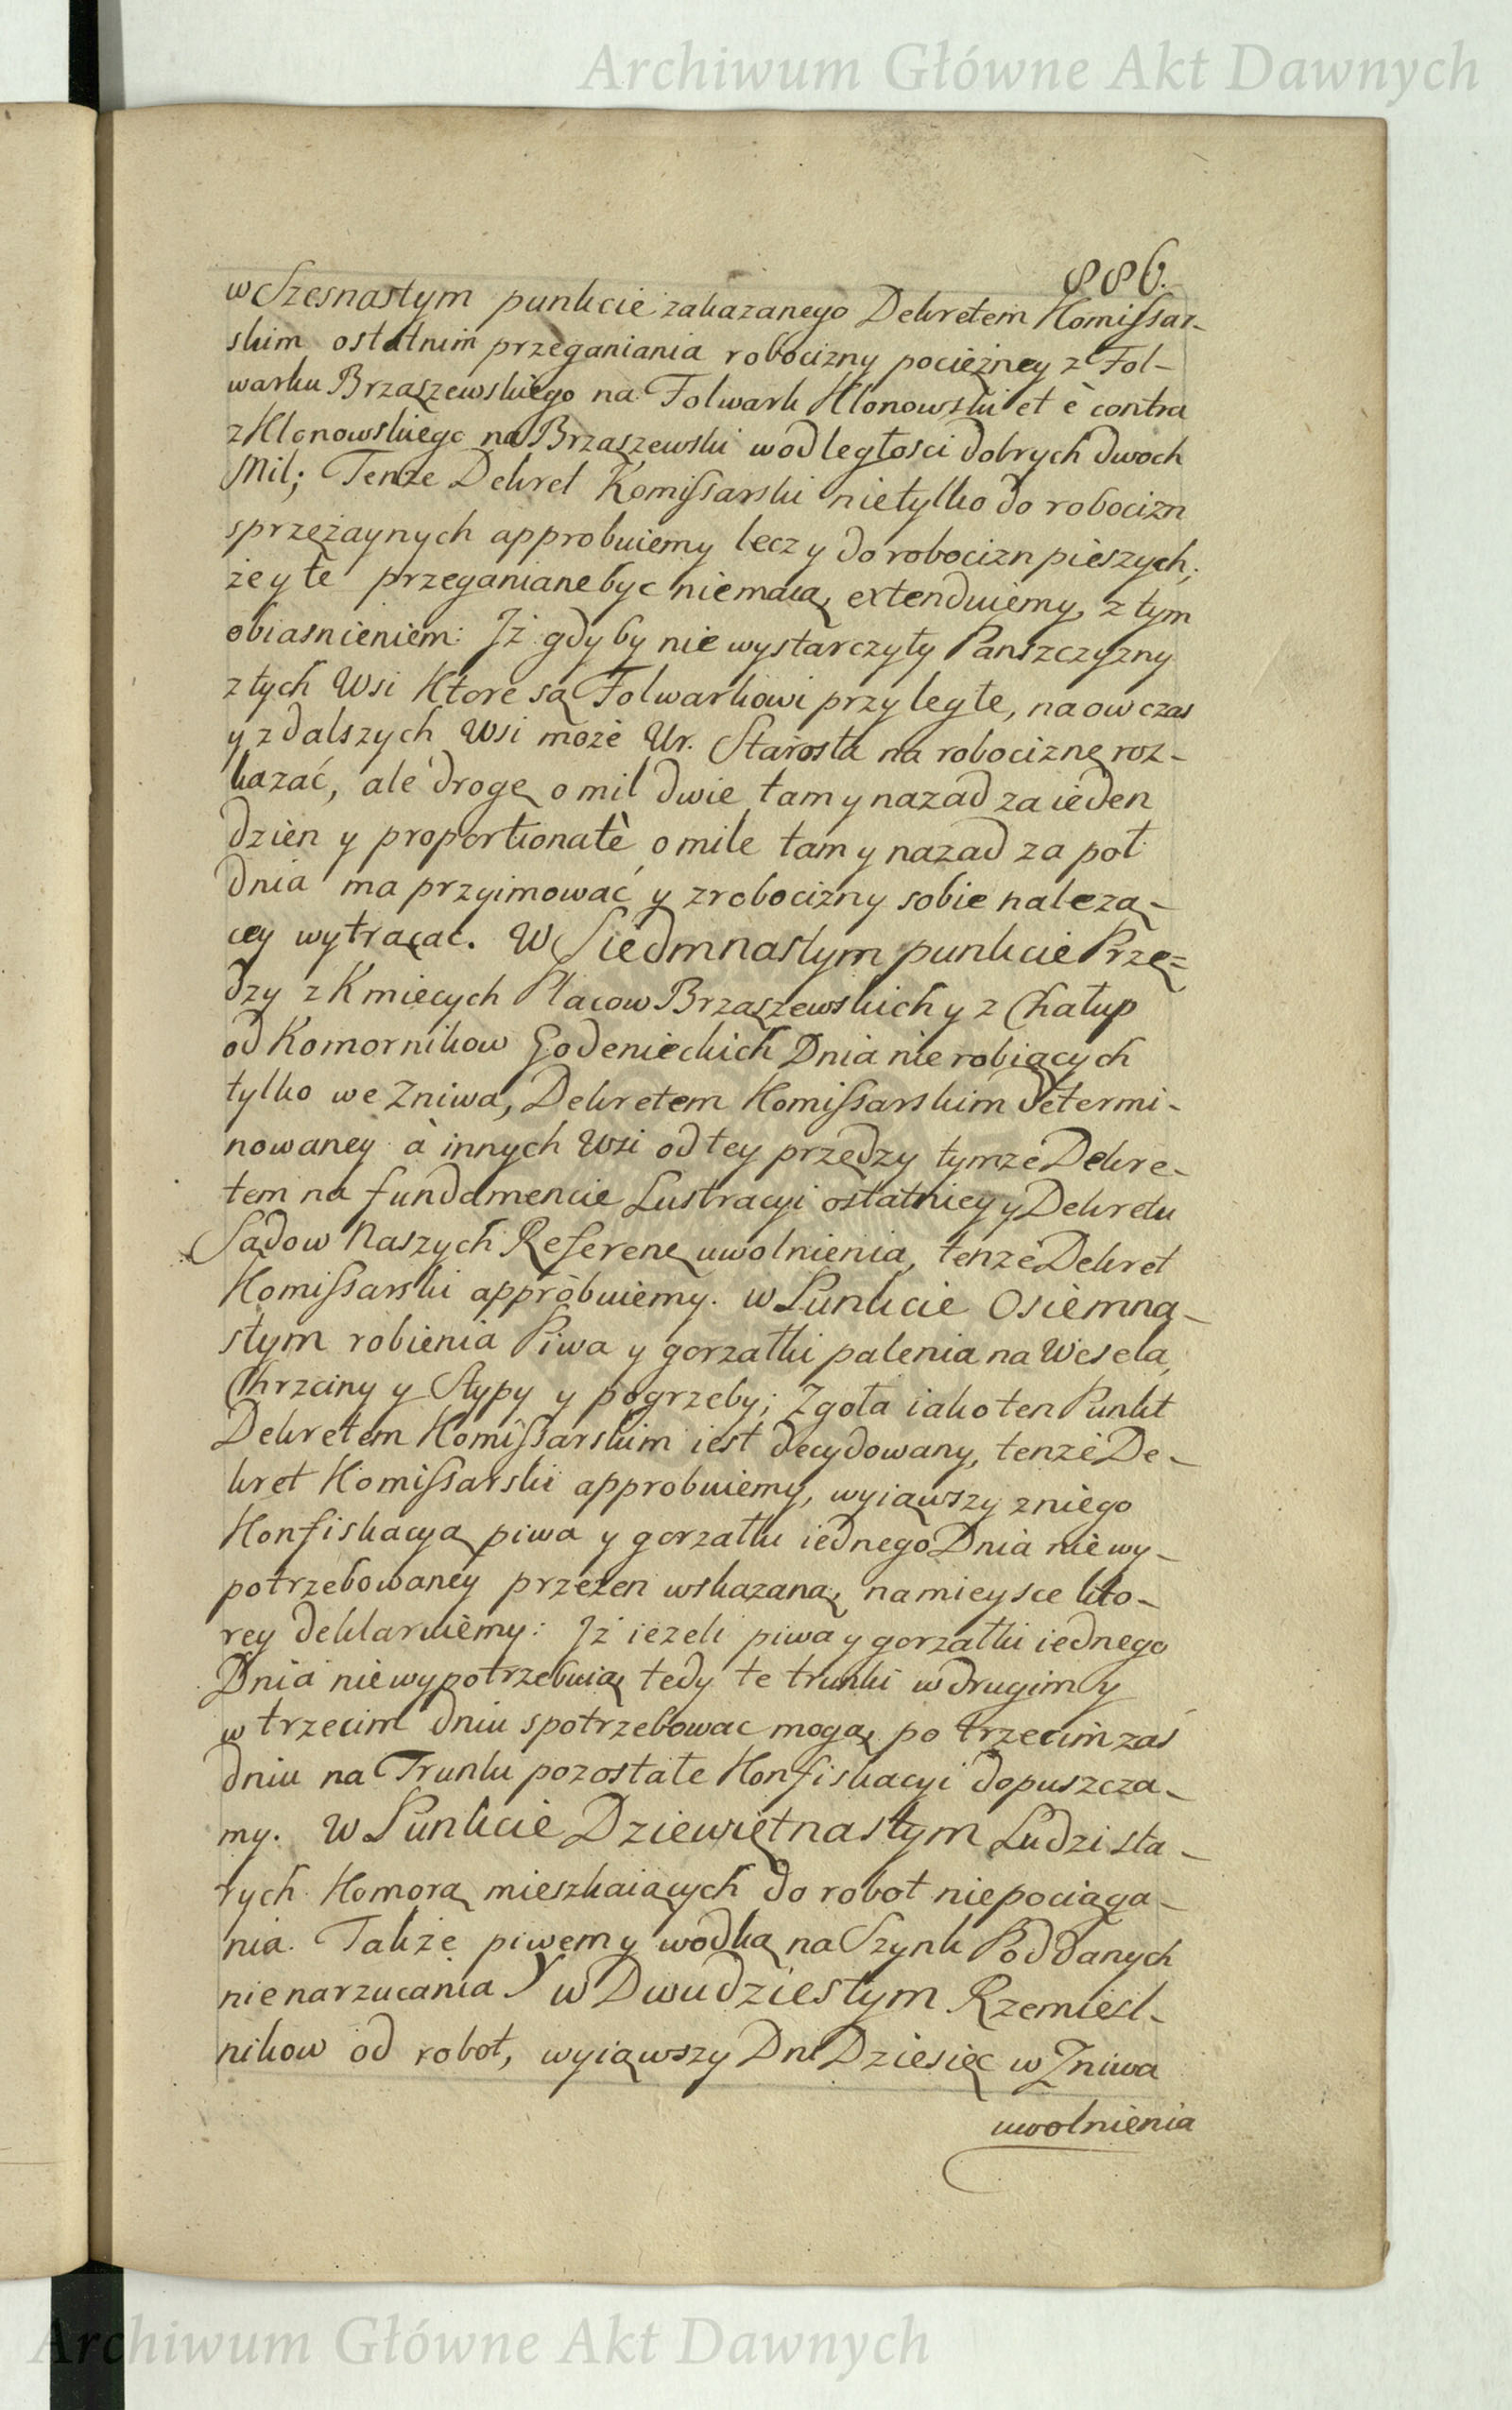 Archiwum Główne Akt Dawnych
886.
w Szesnastym punkcie zakazanego Dekretem Komissar-
skim ostatnim przeganiania robocizny pociężney z Fol-
warku Brzaszewskiego na Folwark Klonowski et è contra
z Klonowskiego na Brzaszewski w odległosci dobrych dwoch
Mil; Tenze Dekret Komissarski nietylko do robocizn
sprzężaynych approbuiemy lecz y do robocizn pieszych;
że y te przeganiane byc niemaią, extendujemy, z tym
obiasnieniem: Iż gdyby nie wystarczyły Panszczyzny
z tych Wsi Ktore są Folwarkowi przyległe, na ow czas
y z dalszych Wsi może Ur. Starosta na robociznę roz-
kazać, ale drogę o mil dwie tam y nazad za ieden
dzien y proportionatè o mile tam y nazad za poł
dnia ma przyimować y z robocizny sobie należą-
cey wytrącać. W Siedmnastym punkcie Przę=
dzy z Kmiecych Placow Brzaszewskich y z Chałup
od Kornornikow Godenieckich Dnia nie robiących
tylko we Zniwa, Dekretem Komissarskim determi-
nowaney à innych Wsi od tey przędzy tymże Dekre-
tem na fundamencie Lustracyi ostatniey y Dekretu
Sądow Naszych Referen uwolnienia, tenże Dekret
Komissarski approbuiemy. w Punkcie Osiemna-
stym robienia Piwa y gorzałki palenia na Wesela,
Chrzciny y Stypy y pogrzeby; Zgoła iako ten Punkt
Dekretem Komissarskim iest decydowany, tenże De-
kret Komissarski approbuiemy, wyiąwszy z niego
Konfiskacyą piwa y gorzałki iednego Dnia nie wy-
potrzebowaney przezen wskazaną, na mieysce kto-
rey deklarujemy: Iż ieżeli piwa y gorzałki iednego
Dnia nie wypotrzebuią, tedy te trunki w drugim y
w trzecim dniu spotrzebowac mogą, po trzecim zaś
dniu na Trunku pozostałe Konfiskacyi dopuszcza-
my. W Punkcie Dziewiętnastym Ludzi sta-
rych Komorą mieszkaiących do robot niepociąga-
nia. Także piwem y wodką na Szynk Poddanych
nie narzucania Y w Dwudziestym Rzemiesl-
nikow od robot, wyiąwszy Dni Dziesięc w Zniwa
uwolnienia
Archiwum Główne Akt Dawnych